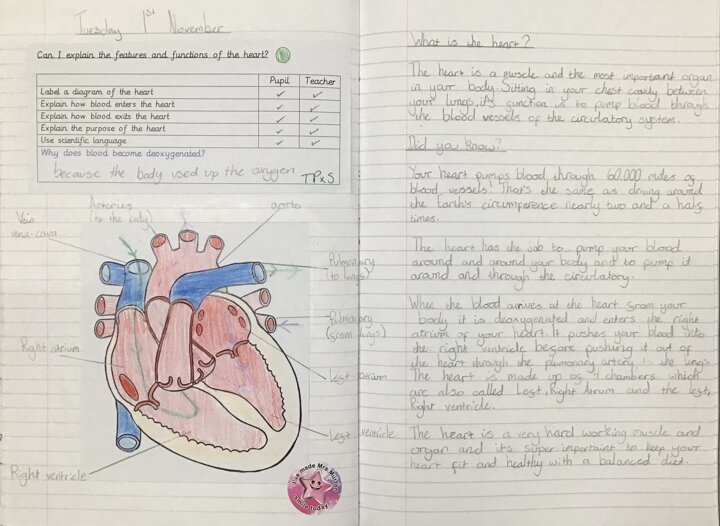 Tuesday 1st November
Can I explain the features and functions of the heart?
Pupil Teacher
Label a diagram of the heart ✓ ✓
Explain how blood enters the heart ✓ ✓
Explain how blood exits the heart ✓ ✓
Explain the purpose of the heart ✓ ✓
Use scientific language ✓ ✓
Why does blood become deoxygenated?
because the body used up the oxygen TPxS
Arteries
(to the body)
aorta
Vein
vena-cava
Pulmonary
(to lungs)
Pulmonary
(from lungs)
Right atrium
Left atrium
Left ventricle
Right ventricle
I've made Mrs
smile today!
What is the heart?
The heart is a muscle and the most important organ
in your body. Sitting in your chest cavity between
your lungs, its function is to pump blood through
the blood vessels of the circulatory system.
Did you know?
Your heart pumps blood through 60,000 miles of
blood vessels! That's the same as driving around
the Earths circumference nearly two and a half
times.
The heart has the job to pump your blood
around and around your body and to pump it
around and through the circulatory.
Whee the blood arrives at the heart from your
body it is deoxygenated and enters the right
atrium of your heart. It pushes your blood into
the right ventricle before pushing it out of
the heart through the pulmonary artery to the lungs
The heart is made up of 4 chambers which
are also called Left, Right Atrium and the left,
Right ventricle.
The heart is a very hard working muscle and
organ and it's super important to keep your
heart fit and healthy with a balanced diet.